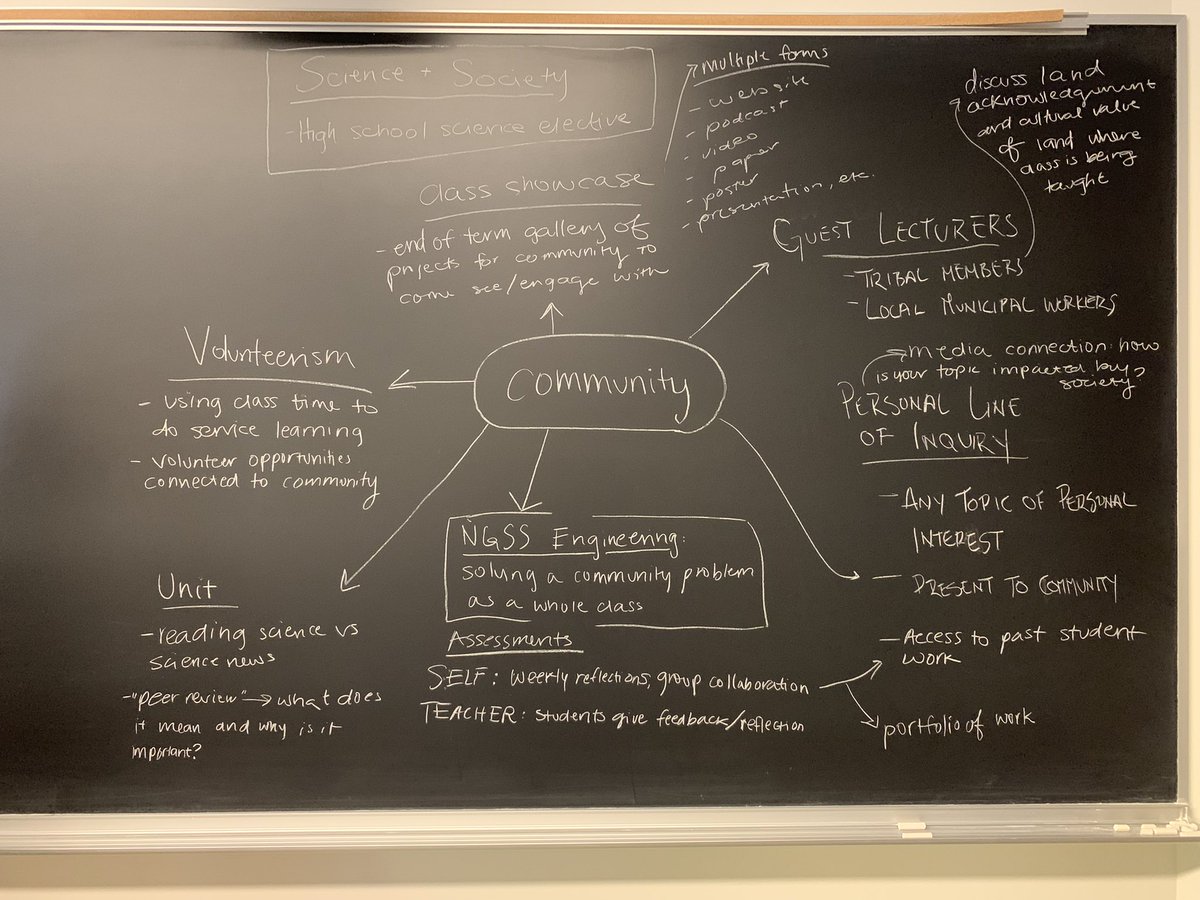 Science + Society
- High school science elective
Class showcase
- end of term gallery of
projects for community to
come see/engage with
Multiple forms
- website
- podcast
- video
- paper
- poster
- presentation, etc.
discuss land
acknowledgment
and cultural value
of land where
class is being
taught
GUEST LECTURERS
- TRIBAL MEMBERS
- LOCAL MUNICIPAL WORKERS
Community
Volunteerism
- using class time to
do service learning
- volunteer opportunities
connected to community
media connection: how
is your topic impacted by
society?
PERSONAL LINE
OF INQUIRY
- ANY TOPIC OF PERSONAL
INTEREST
- PRESENT TO COMMUNITY
NGSS Engineering:
solving a community problem
as a whole class
Unit
- reading science vs
science news
- "peer review" → what does
it mean and why is it
important?
Assessments
SELF: weekly reflections, group collaboration
TEACHER: students give feedback/reflection
- Access to past student
work
portfolio of work